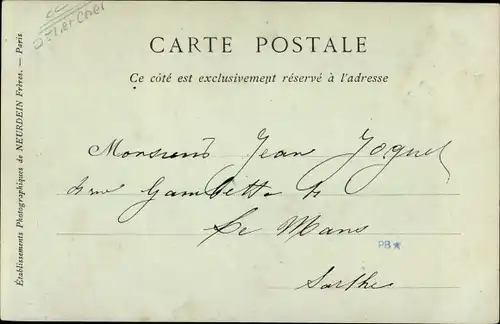 CARTE POSTALE
Ce côté est exclusivement réservé à l'adresse
Monsieur Jean Joquel
rue Gambetta
Le Mans
PB★
Sarthe
Établissements Photographiques de NEURDEIN Frères. — Paris.